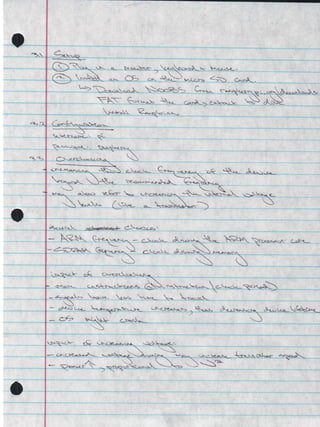 3.1 Setup
① Plug in a monitor, keyboard + mouse
② Install an OS on the micro SD card
↳ Download NOOBS from raspberrypi.org/downloads
FAT format the card, extract to disk
Install Raspbian
3.2 Configuration
username: pi
password: raspberry
3.3 Overclocking
- increasing the clock frequency of the device
beyond the recommended frequency
- may also refer to increasing the internal voltage
choices
- ARM frequency - clock driving the ARM processor core
- SDRAM frequency - clock driving memory
impact of overclocking
- more instructions @ instruction / clock period
- signals have less time to travel
- device temperature increases, thus decreasing device lifetime
- OS might crash
impact of increasing voltage:
- increased voltage may increase transistor speed
- power ↑, proportional to V²